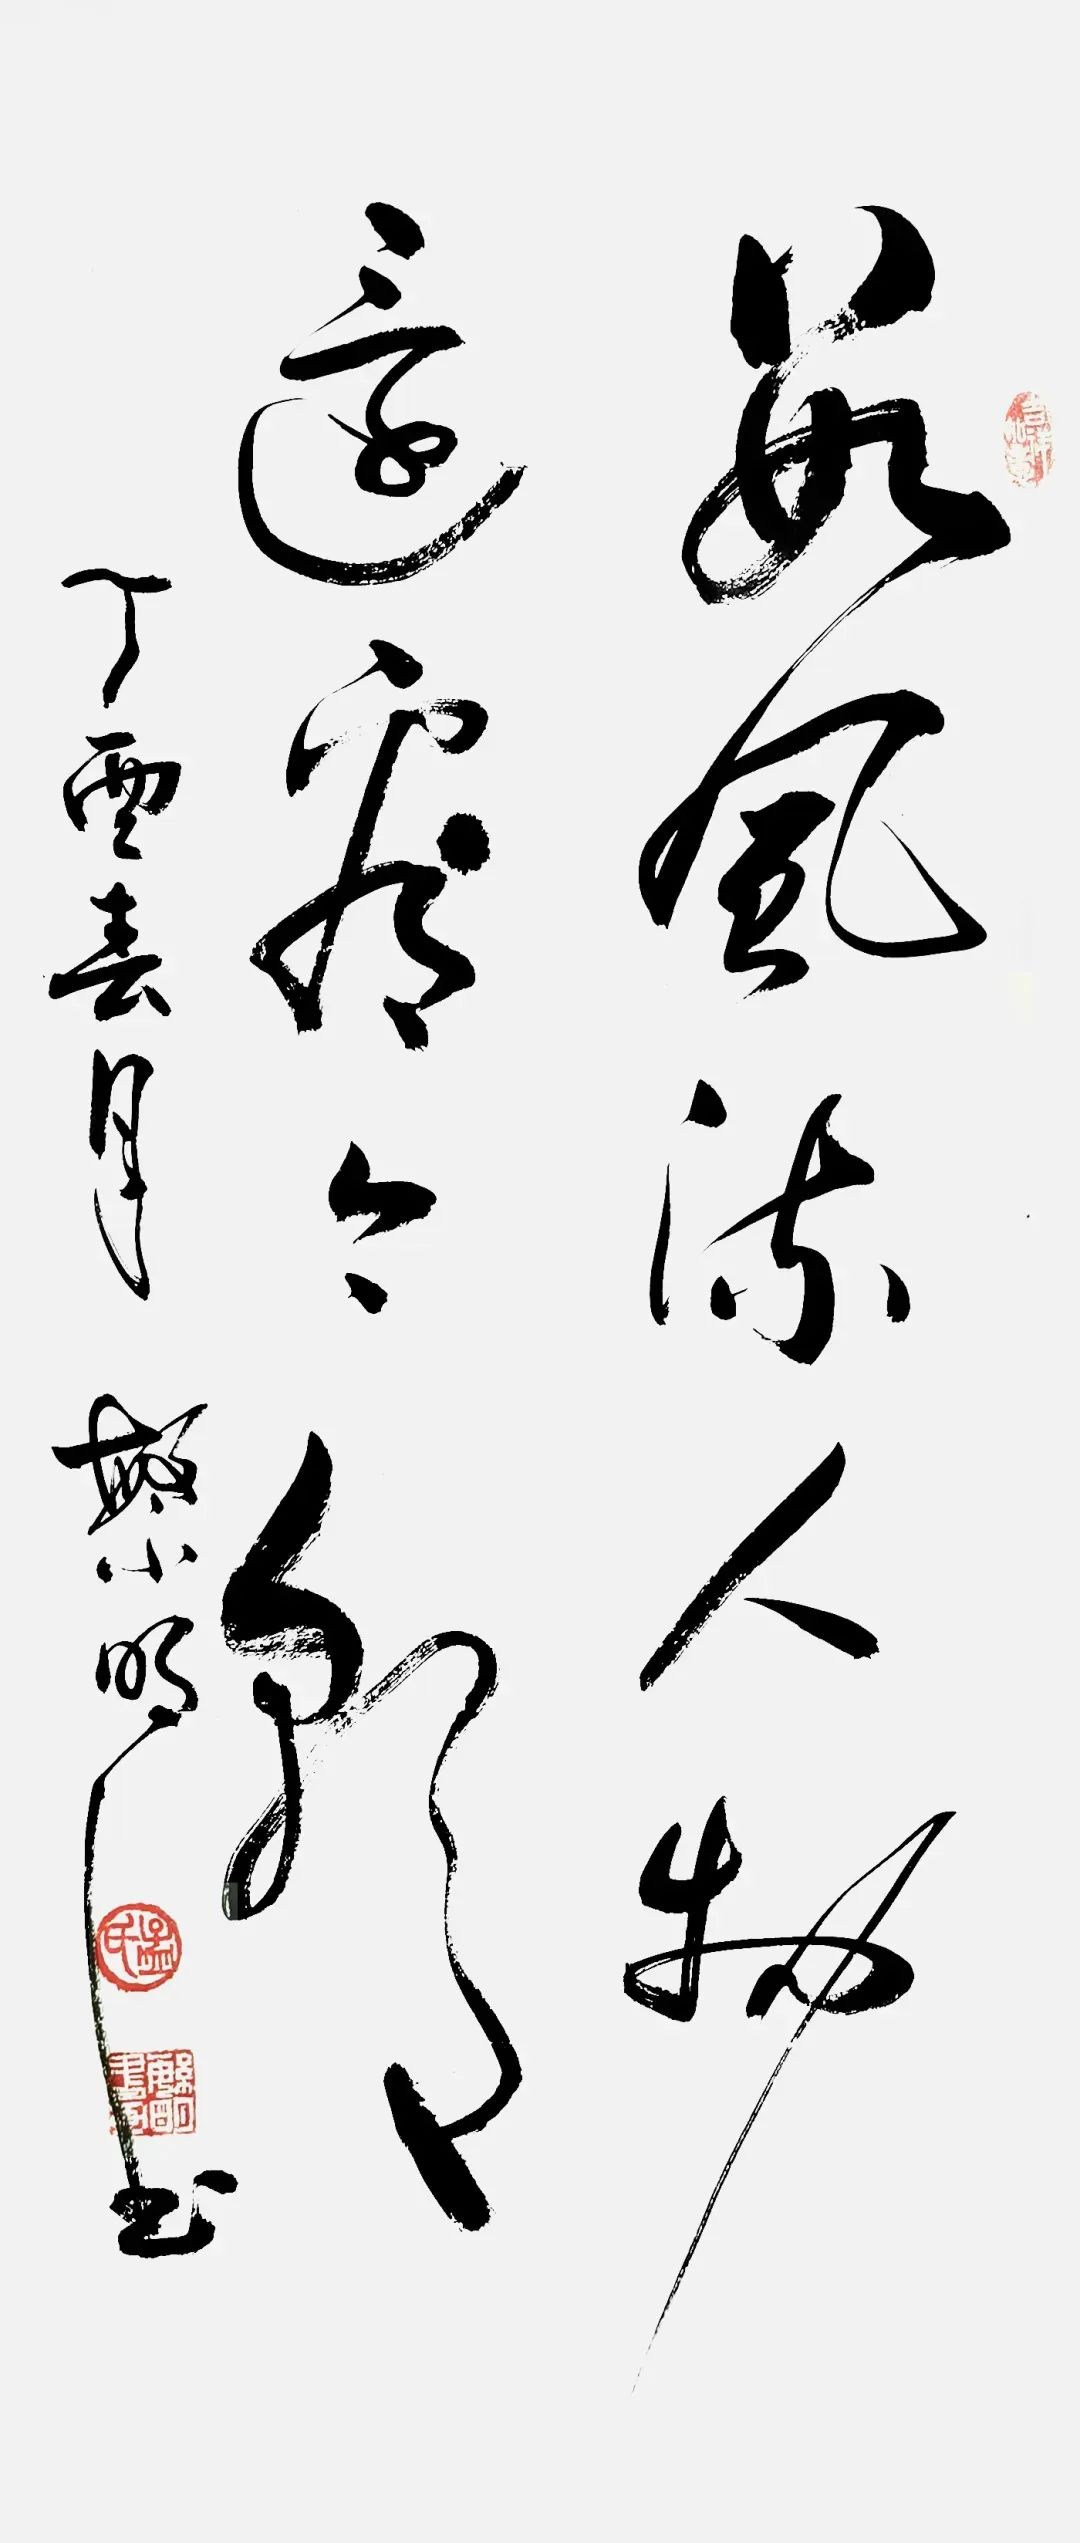 数风流人物
还看今朝
丁酉春月 繁小明书